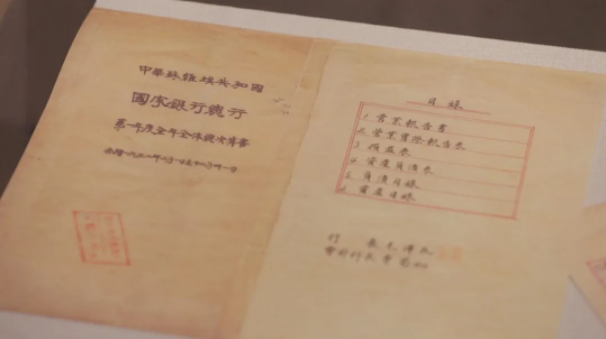 中華蘇維埃共和國
國家銀行總行
第一年度全年全体總决算書
自曆一九三二年
目錄
1. 營業報告書
2. 營業實際報告表
3. 損益表
4. 資產負債表
5. 負債目錄
6. 資產目錄
行 長毛澤民
會計科長曹菊如